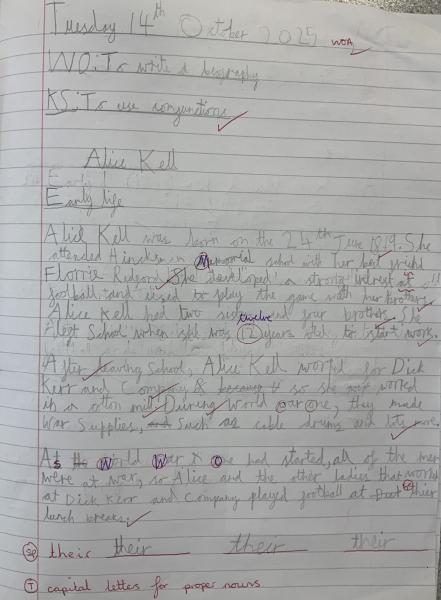 Tuesday 14th October 2025 WOA
WO: To write a biography
KS: To use conjunctions
Alice Kell
Early life
Early life
Alice Kell was born on the 24th June 1819. She
attended Hincks in Memorial school with her best freind
Florrie Redford. She developed a strong intrest of
football and used to play the game with her brothers.
Alice Kell had two sisters and four brothers. She
left School when she was twelve 12 years old, to start work.
After leaving School, Alice Kell workd for Dick
Kerr and Company & because so she worked
in a otton mill. During World war one, they made
War Supplies, and Such as cable drums and lots more.
As World War one had started, all of the men
were at war, so Alice and the other ladies that workd
at Dick Kerr and Company played football at thier
lunch breaks.
sp their their their their
T capital letters for proper nouns